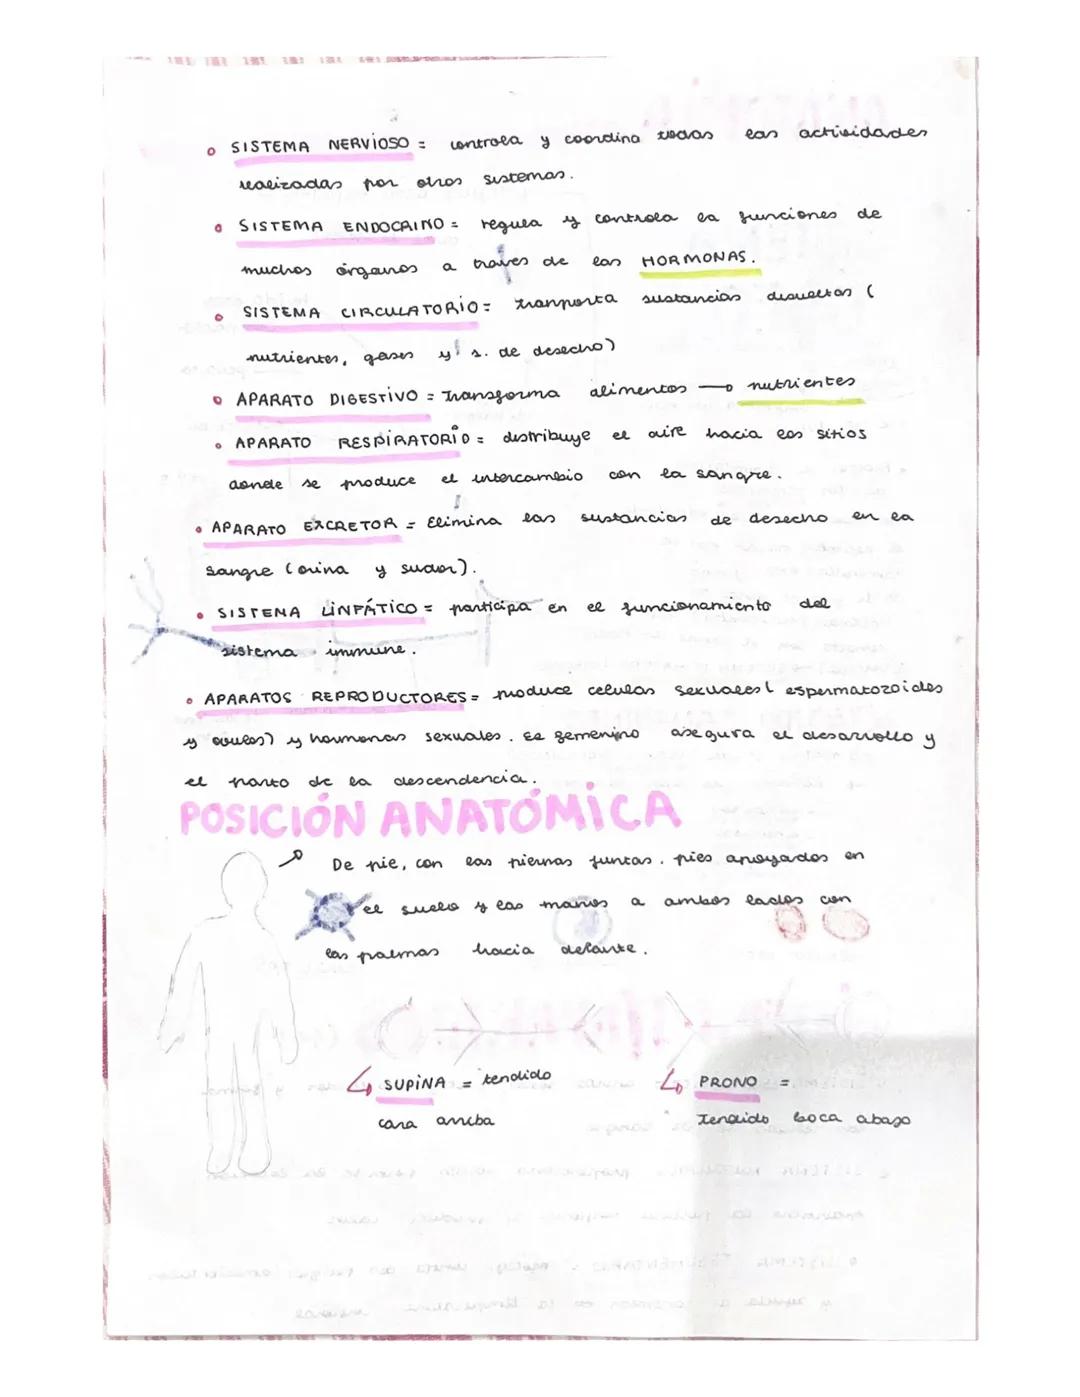 SISTEMA NERVIOSO = controla y coordina todas las actividades
realizadas por otros sistemas.
SISTEMA ENDOCRINO = regula y controla la funciones de
muchos órganos a través de las HORMONAS.
SISTEMA CIRCULATORIO = tranporta sustancias disueltas (
nutrientes, gases y s. de desecho)
APARATO DIGESTIVO = Transforma alimentos → nutrientes
APARATO RESPIRATORIO = distribuye el aire hacia los sitios
donde se produce el intercambio con la sangre.
APARATO EXCRETOR = Elimina las sustancias de desecho en la
sangre (orina y sudor).
SISTEMA LINFÁTICO = participa en el funcionamiento del
sistema immune.
APARATOS REPRODUCTORES = produce celulas sexuales ( espermatozoides
y ovulos) y hormonas sexuales. El femenino asegura el desarrollo y
el parto de la descendencia.
POSICIÓN ANATÓMICA
De pie, con las piernas juntas. pies apoyados en
el suelo y las manos a ambos lados con
las palmas hacia delante.
SUPINA = tendido
cara arriba
PRONO =
Tendido boca abajo